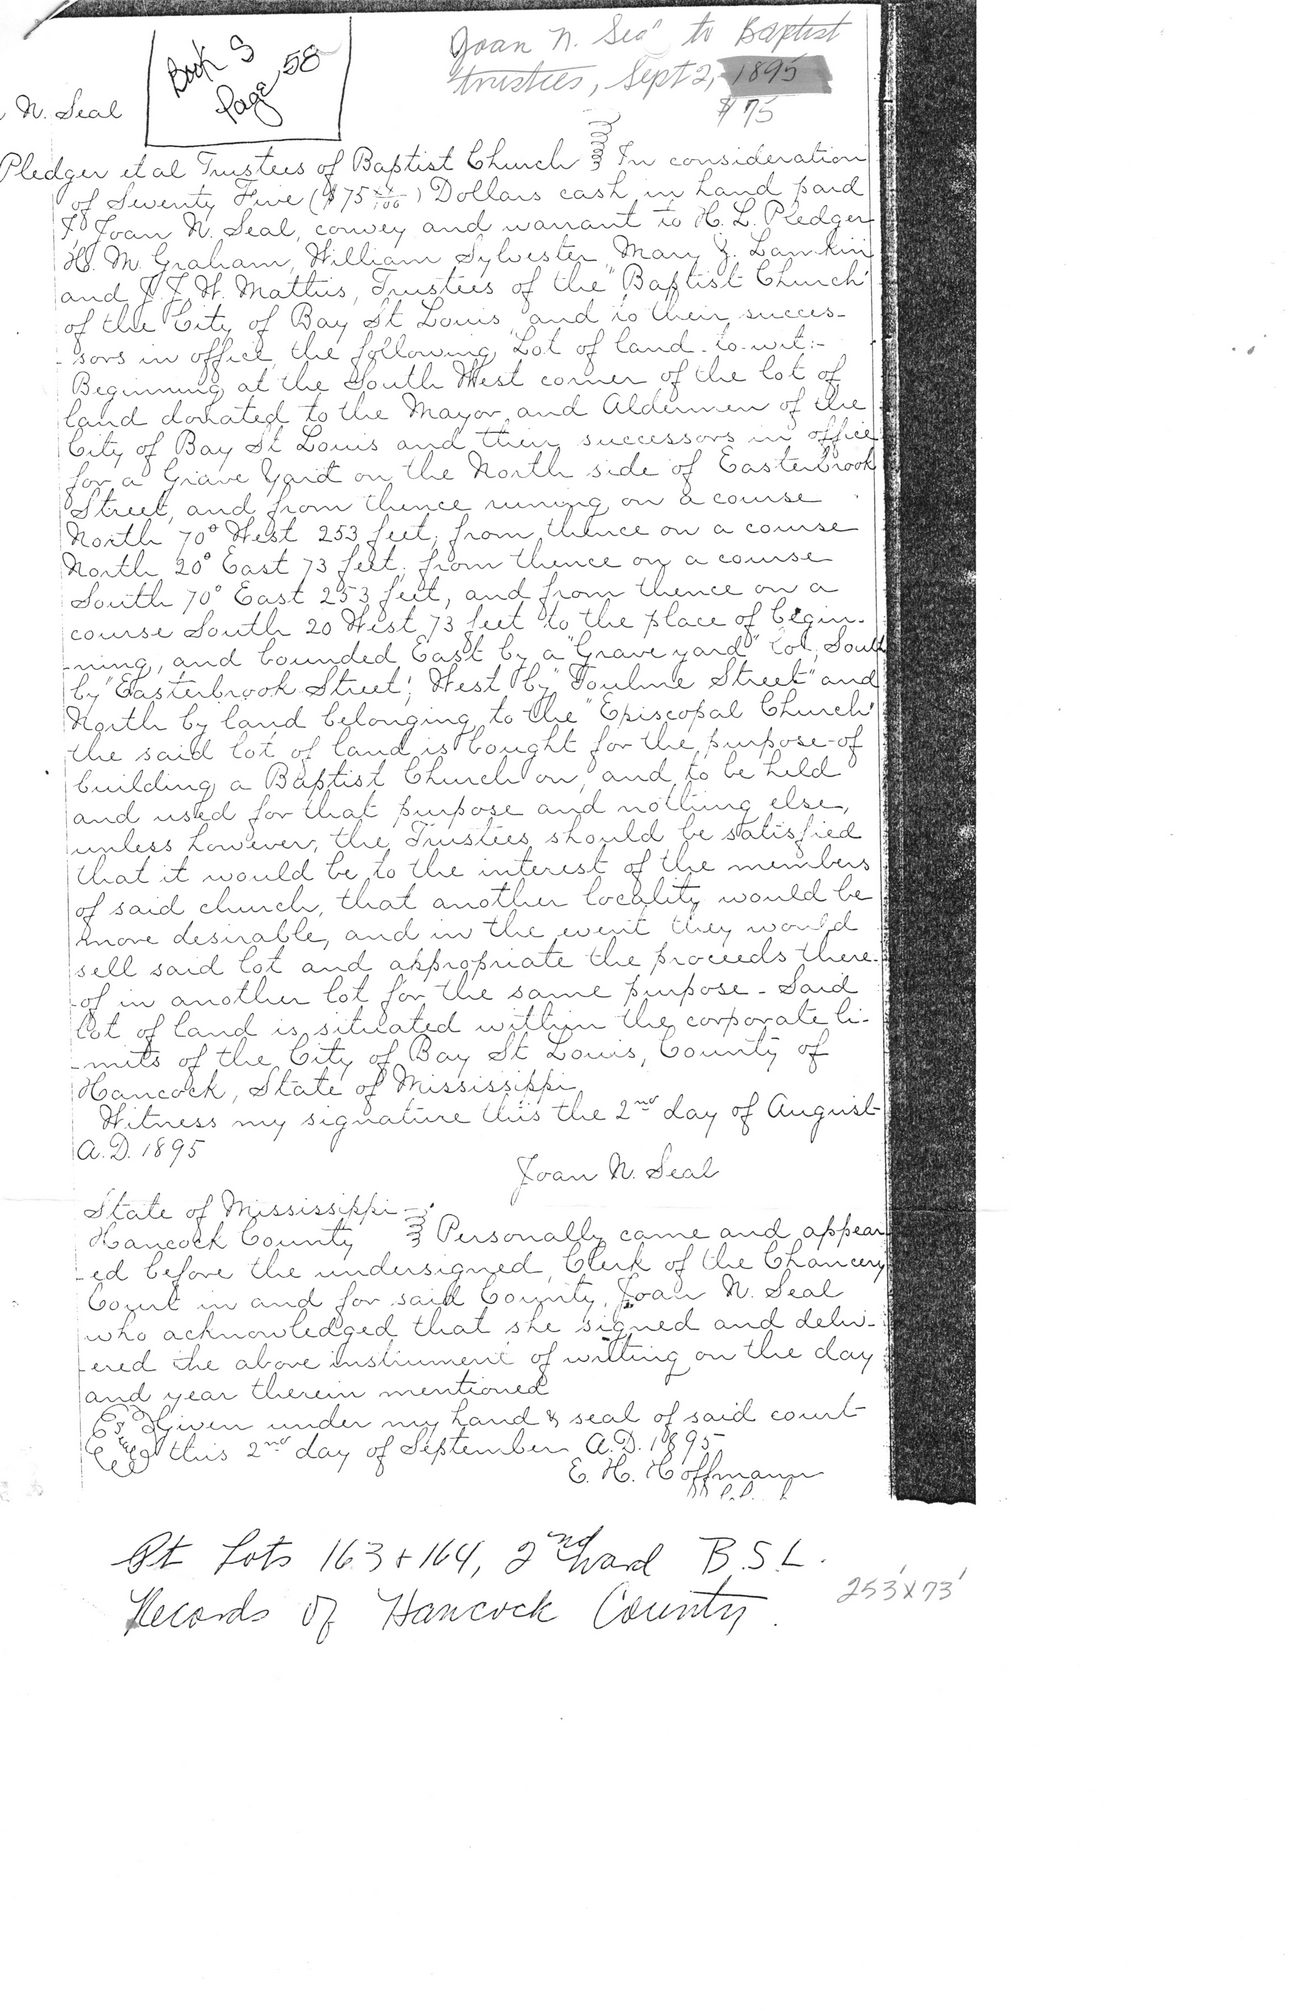 Book S
Page 58
Joan N. Seal to Baptist
trustees, Sept 2, 1895
$75
N. Seal
Pledger et al Trustees of Baptist Church } In consideration
of Seventy Five ($75 xx/100) Dollars cash in hand paid
I, Joan N. Seal, convey and warrant to H. L. Pledger
H. M. Graham, William Sylvester, Mary J. Lamkin
and J. J. W. Mathis, Trustees of the "Baptist Church"
of the City of Bay St Louis, and to their succes-
sors in office, the following Lot of land to-wit:-
Beginning at the South West corner of the lot of
land donated to the Mayor and Aldermen of the
City of Bay St Louis and their successors in office
for a Grave Yard on the North side of Easterbrook
Street, and from thence runing on a course
North 70° West 253 feet; from thence on a course
North 20° East 73 feet; from thence on a course
South 70° East 253 feet, and from thence on a
course South 20 West 73 feet to the place of begin-
-ning, and bounded East by a "Grave yard" lot, South
by "Easterbrook Street", West by "Toulme Street" and
North by land belonging to the "Episcopal Church"
the said lot of land is bought for the purpose of
building a Baptist Church on, and to be held
and used for that purpose and nothing else,
unless however, the Trustees should be satisfied
that it would be to the interest of the members
of said church, that another locality would be
more desirable, and in the event they would
sell said lot and appropriate the proceeds there-
-of in another lot for the same purpose - Said
lot of land is situated within the corporate li-
-mits of the City of Bay St Louis, County of
Hancock, State of Mississippi
Witness my signature this the 2nd day of August
A.D. 1895
Joan N. Seal
State of Mississippi
Hancock County } Personally came and appear
-ed before the undersigned, Clerk of the Chancery
Court in and for said County, Joan N. Seal
who acknowledged that she signed and deliv-
-ered the above instrument of writing on the day
and year therein mentioned
Seal Given under my hand & seal of said court
this 2nd day of September A.D. 1895
E. H. Hoffmann
Pt Lots 163 + 164, 2nd Ward B.S.L.
253' x 73'
Records of Hancock County.